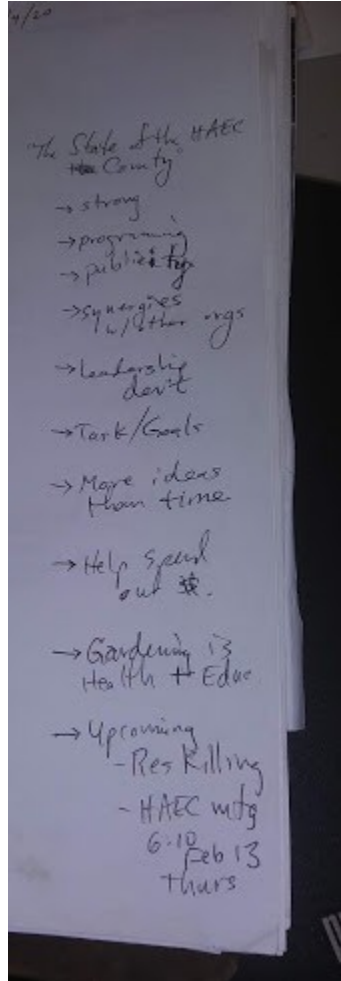 4/20
"The State of the HAEC
County"
→ strong
→ programing
→ publicity
→ synergies
w/other orgs
→ Leadership
dev't
→ Task/Goals
→ More ideas
than time
→ Help spend
our $.
→ Gardening is
Health + Educ
→ Upcoming
- ReSkilling
- HAEC mtg
6:10
Feb 13
Thurs